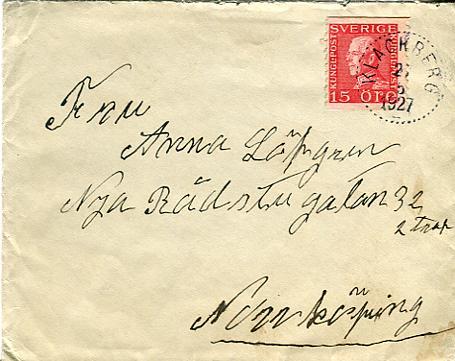 SVERIGE
KUNGL·POST
15 ÖRE
KLACKBERG
2
5
1927
Fru
Anna Löfgren
Nya Rådstugatan 32
2 trap
Norrköping